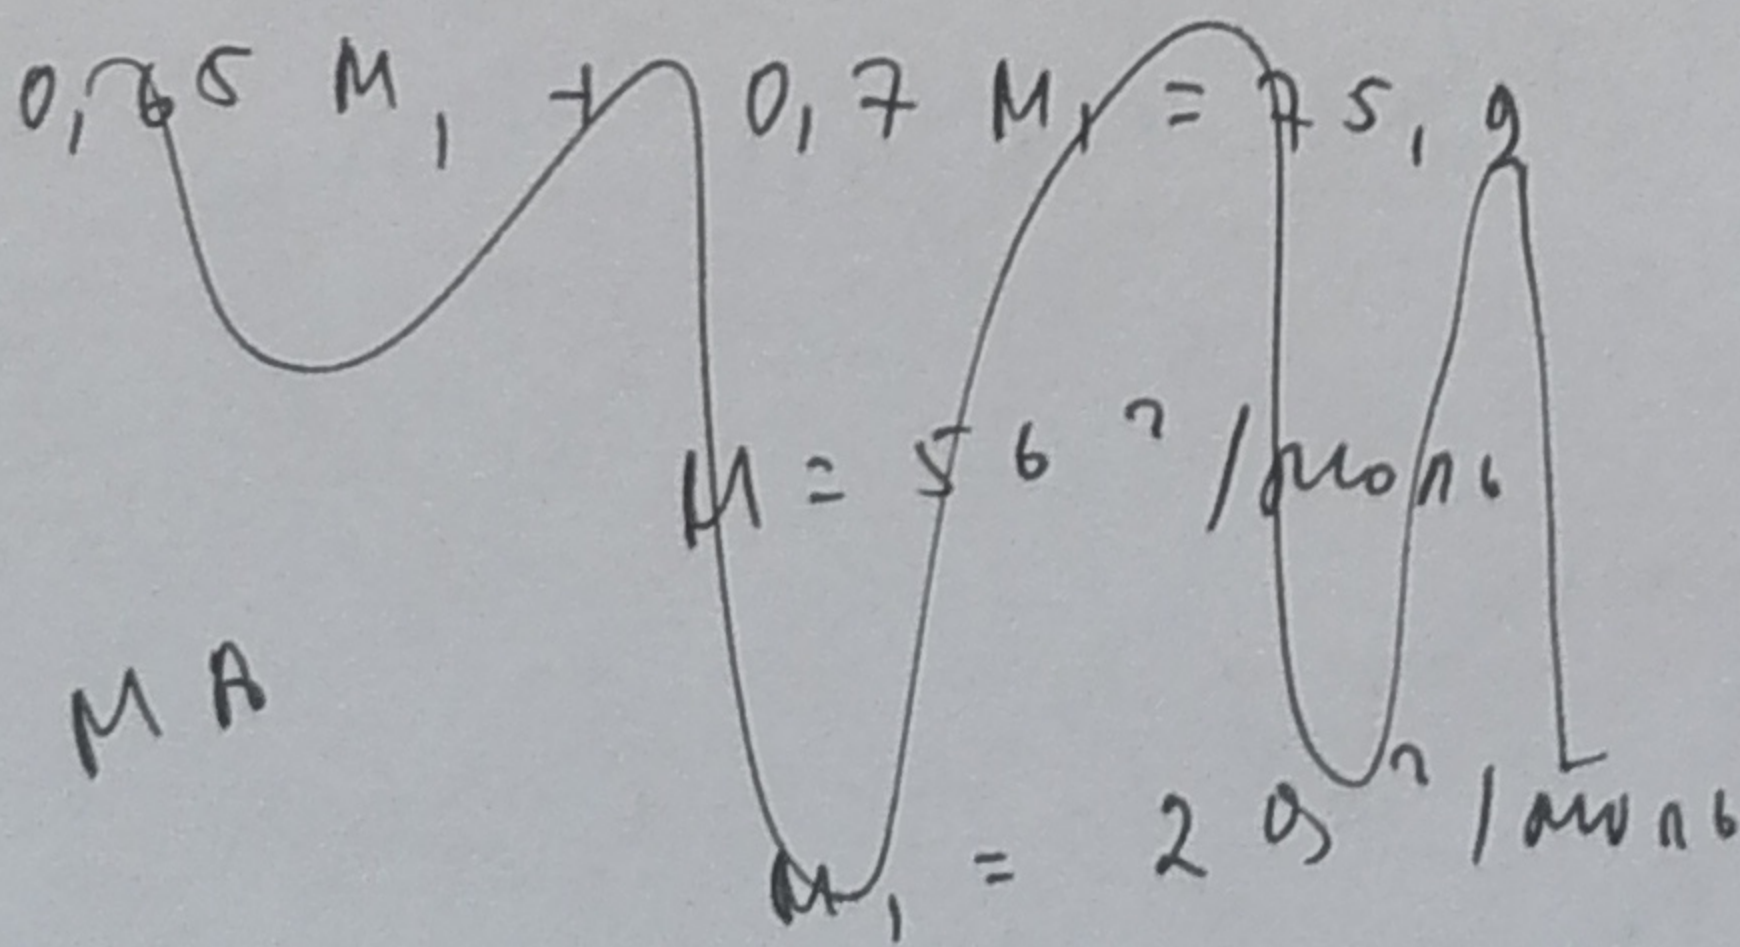 0,65 M₁ + 0,7 M₁ = 75,9
M = 56 г/моль
МА
M₁ = 29 г/моль